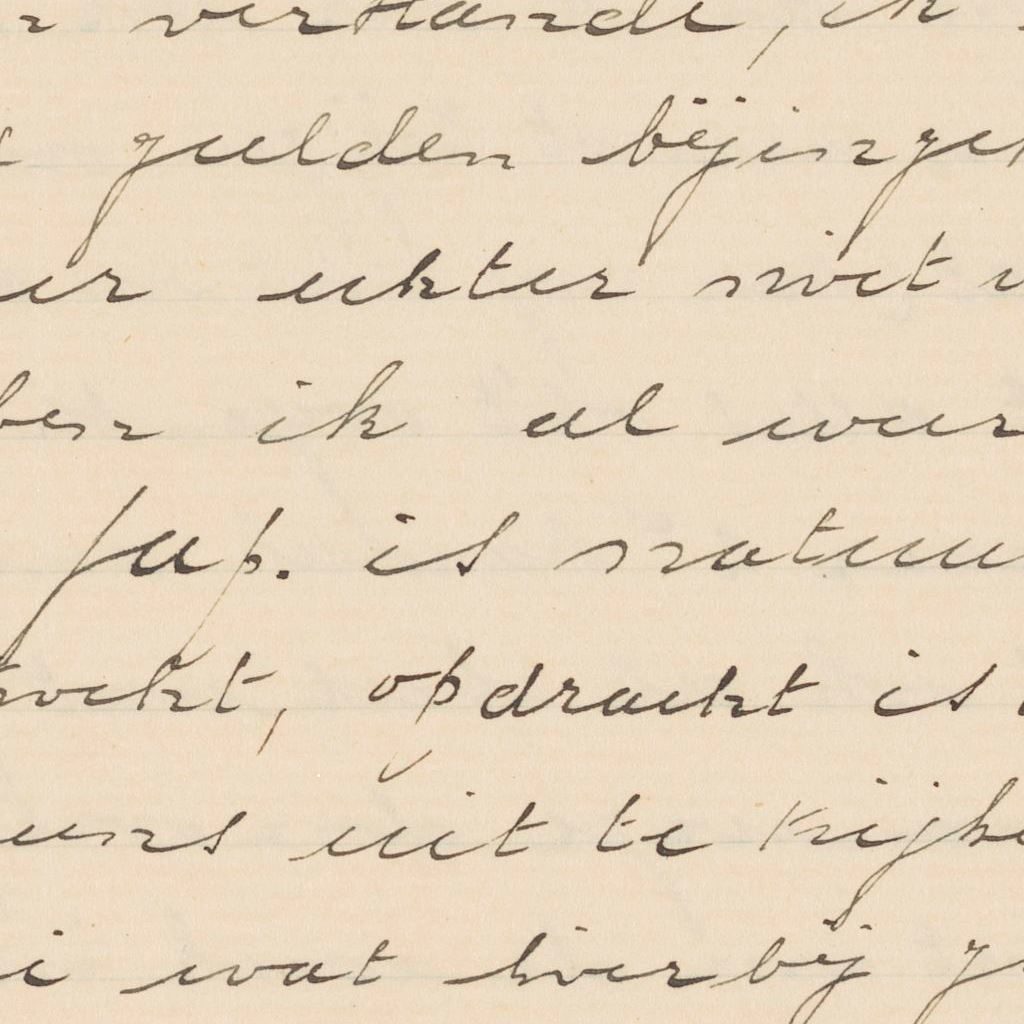 verstande, ik
gulden bijeenge
er echter niet
ben ik al
Jap. is natuu
zocht, opdracht is
eens uit te kijke
wat hierbij